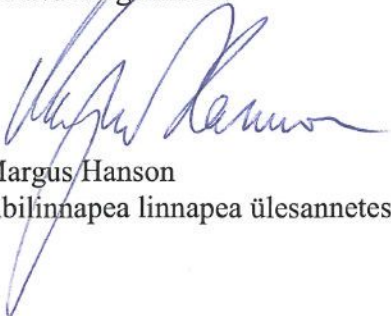 Margus Hanson
abilinnapea linnapea ülesannetes